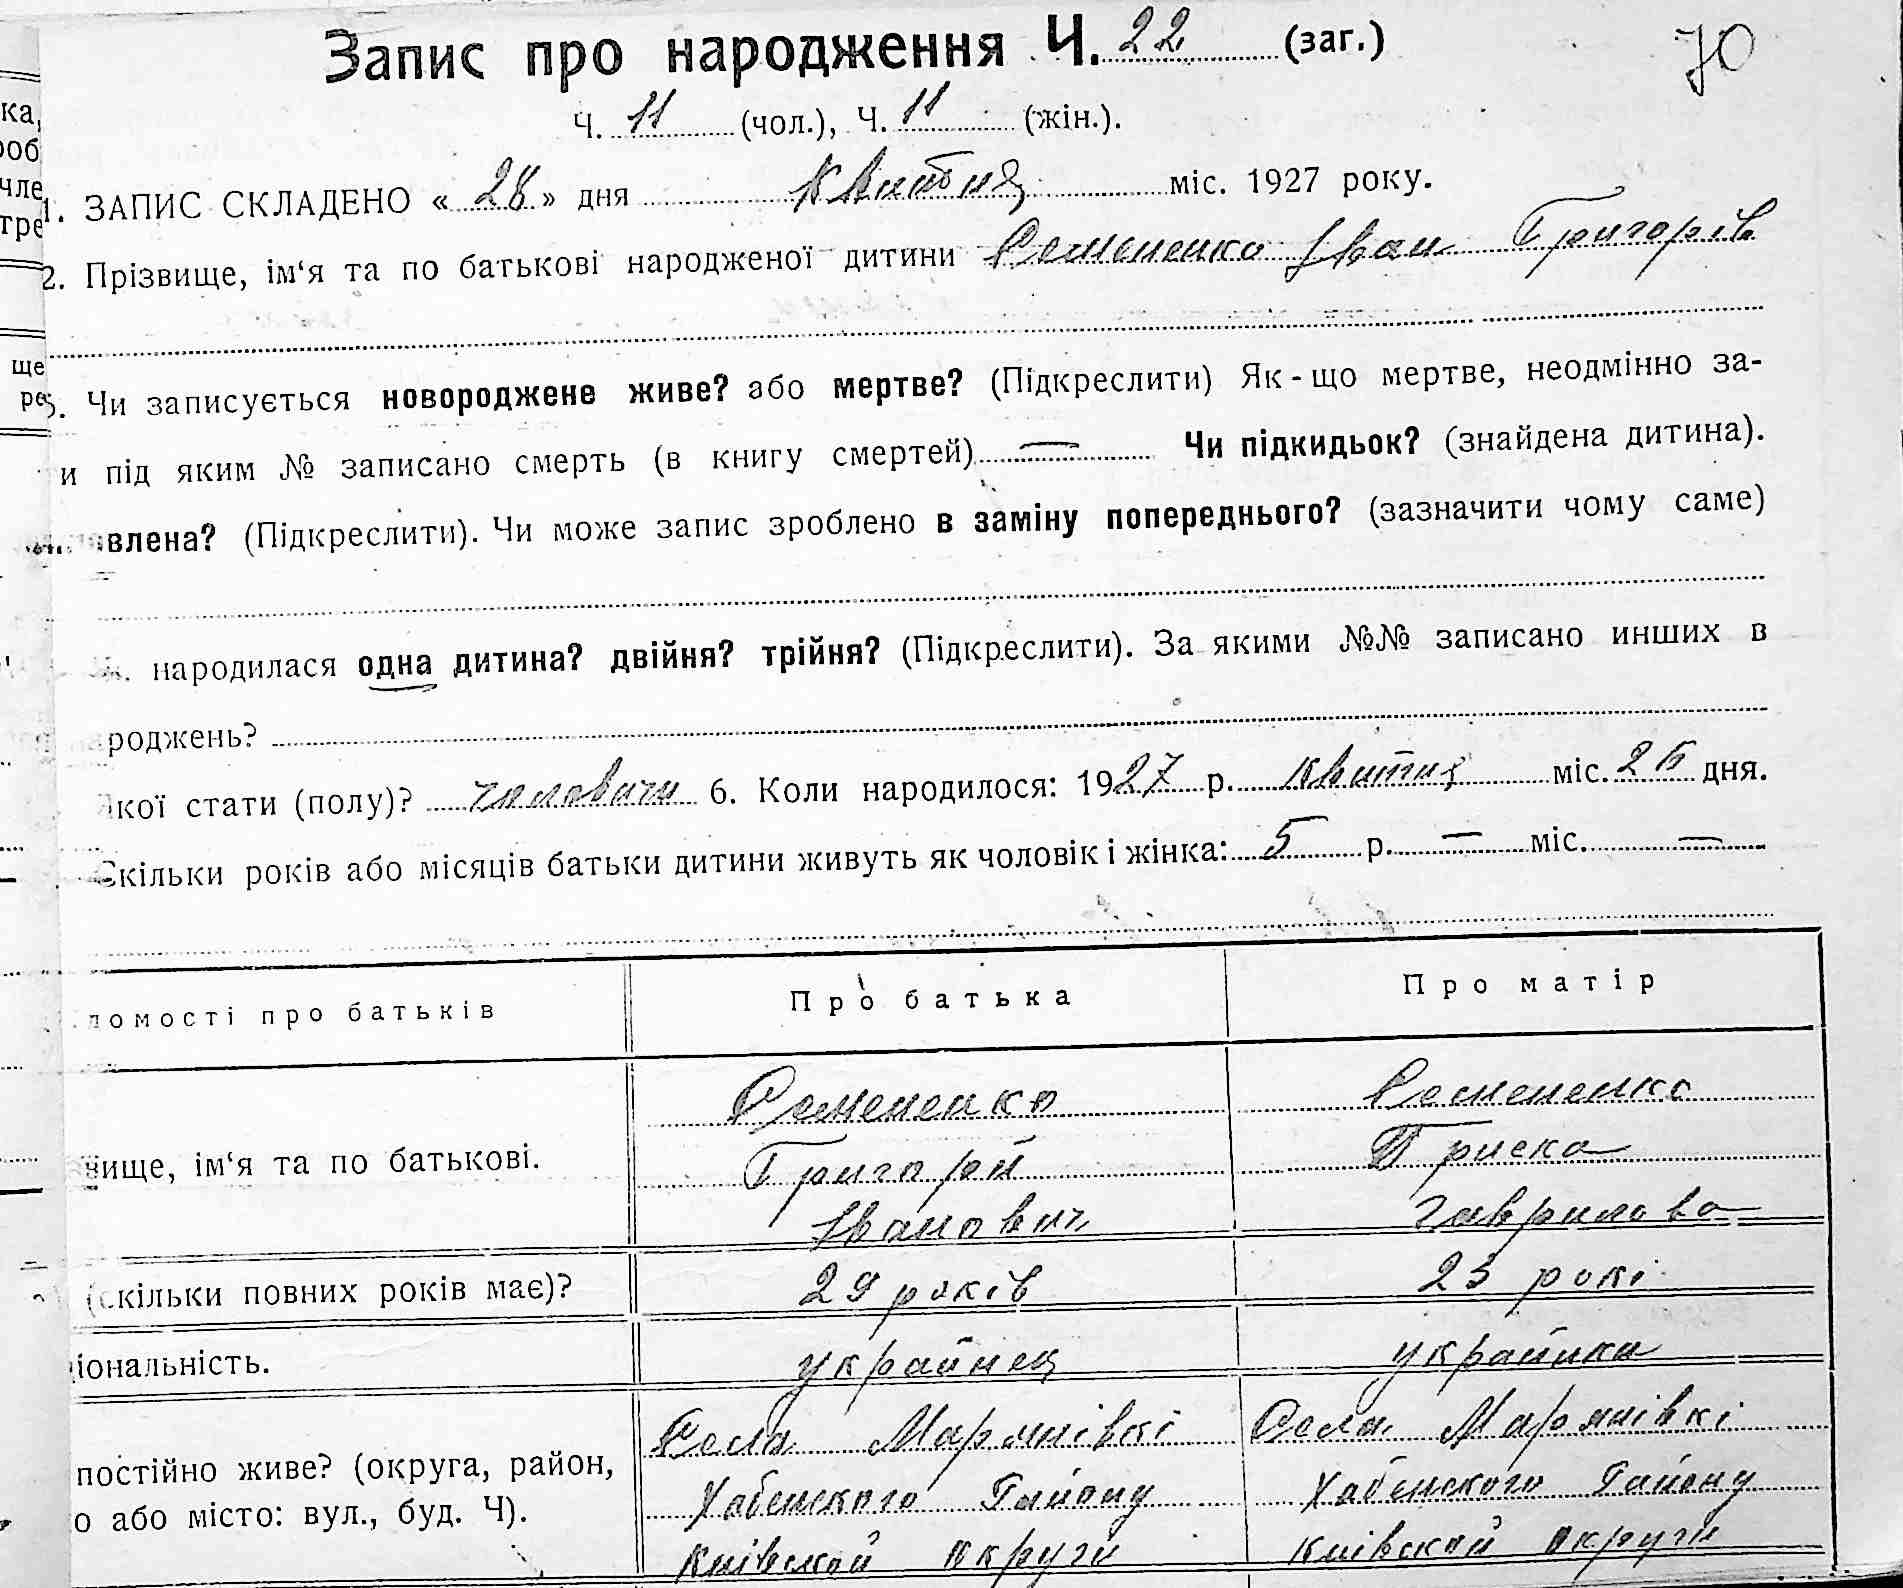 Запис про народження Ч. 22 (заг.)
70
Ч. 11 (чол.), Ч. 11 (жін.).
1. ЗАПИС СКЛАДЕНО « 28 » дня Квитня міс. 1927 року.
2. Прізвище, ім‘я та по батькові народженої дитини Семененко Іван Григорів
3. Чи записується новороджене живе? або мертве? (Підкреслити) Як-що мертве, неодмінно за-
и під яким № записано смерть (в книгу смертей) — Чи підкидьок? (знайдена дитина).
влена? (Підкреслити). Чи може запис зроблено в заміну попереднього? (зазначити чому саме)
народилася одна дитина? двійня? трійня? (Підкреслити). За якими №№ записано инших в
роджень?
кої стати (полу)? чоловичи 6. Коли народилося: 1927 р. квитня міс. 26 дня.
Скільки років або місяців батьки дитини живуть як чоловік і жінка: 5 р. — міс. —
домості про батьків Про батька Про матір
Семененко Семененко
Григорій Приска
вище, ім‘я та по батькові.
Іванович Гаврилова
(скільки повних років має)? 29 років 23 рокі
іональність. украйнец украйнка
Села Мар'янівкі Села Мар'янівкі
постійно живе? (округа, район, Хабенского Району Хабенского Району
о або місто: вул., буд. Ч).
Київской округи Київской округи
ка,
роб
чле
тре
ще
ре